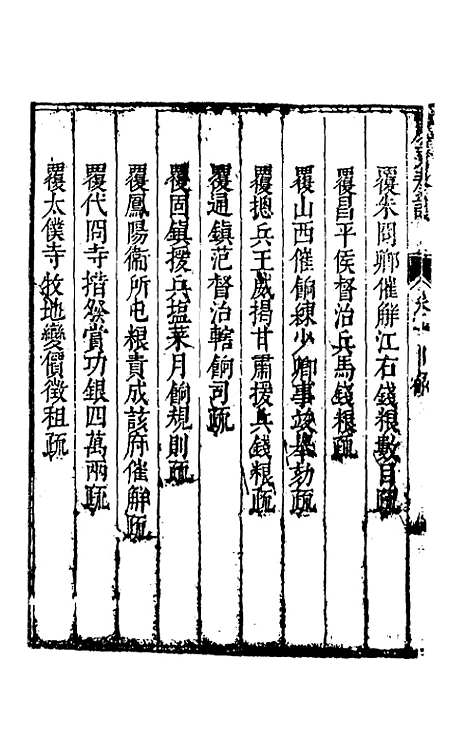 覆朱冏卿催解江右錢粮數目疏
覆昌平侯督治兵馬錢粮疏
覆山西催餉練少卿事竣舉劾疏
覆摠兵王威揭甘肅援兵錢粮疏
覆通鎮范督治轄餉司疏
覆固鎮援兵塩菜月餉規則疏
覆鳳陽衞所屯粮責成該府催解疏
覆代冏寺措發賞功銀四萬兩疏
覆太僕寺牧地變價徵租疏